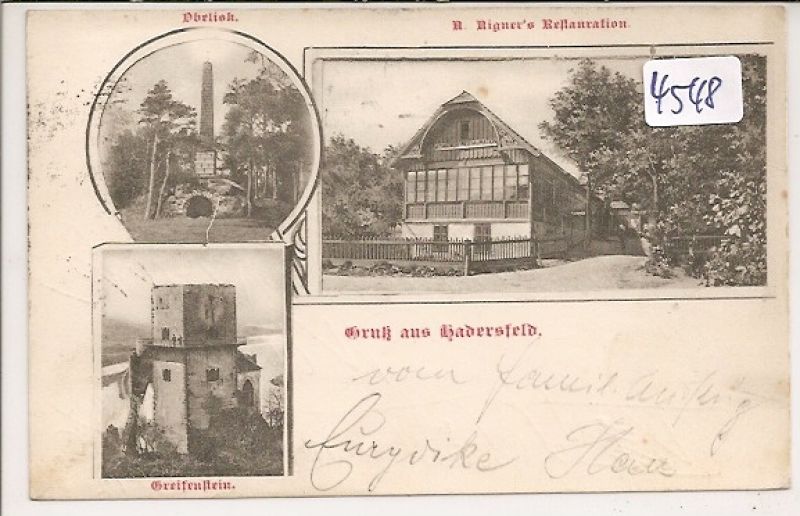 Obelisk.
N. Rigner's Restauration.
4548
Gruß aus Hadersfeld.
vom Familienausflug
Eurydike
Greifenstein.